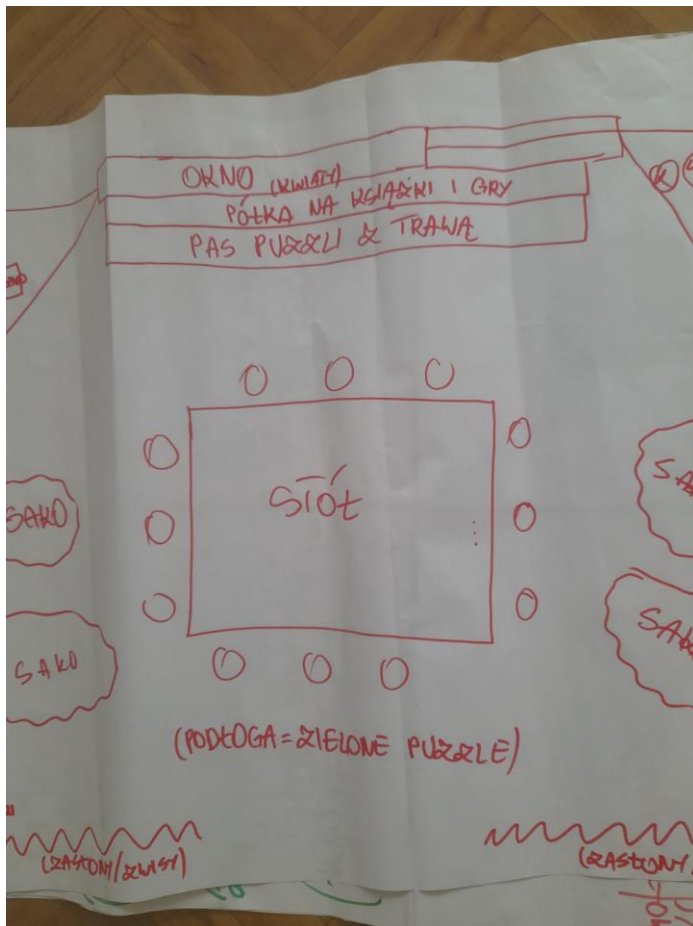 OKNO (KWIATY)
PÓŁKA NA KSIĄŻKI I GRY
PAS PUZZLI Z TRAWĄ
K
STÓŁ
SAKO
SAKO
SA
SAK
(PODŁOGA = ZIELONE PUZZLE)
(ZASŁONY/ZWISY)
(ZASŁONY/